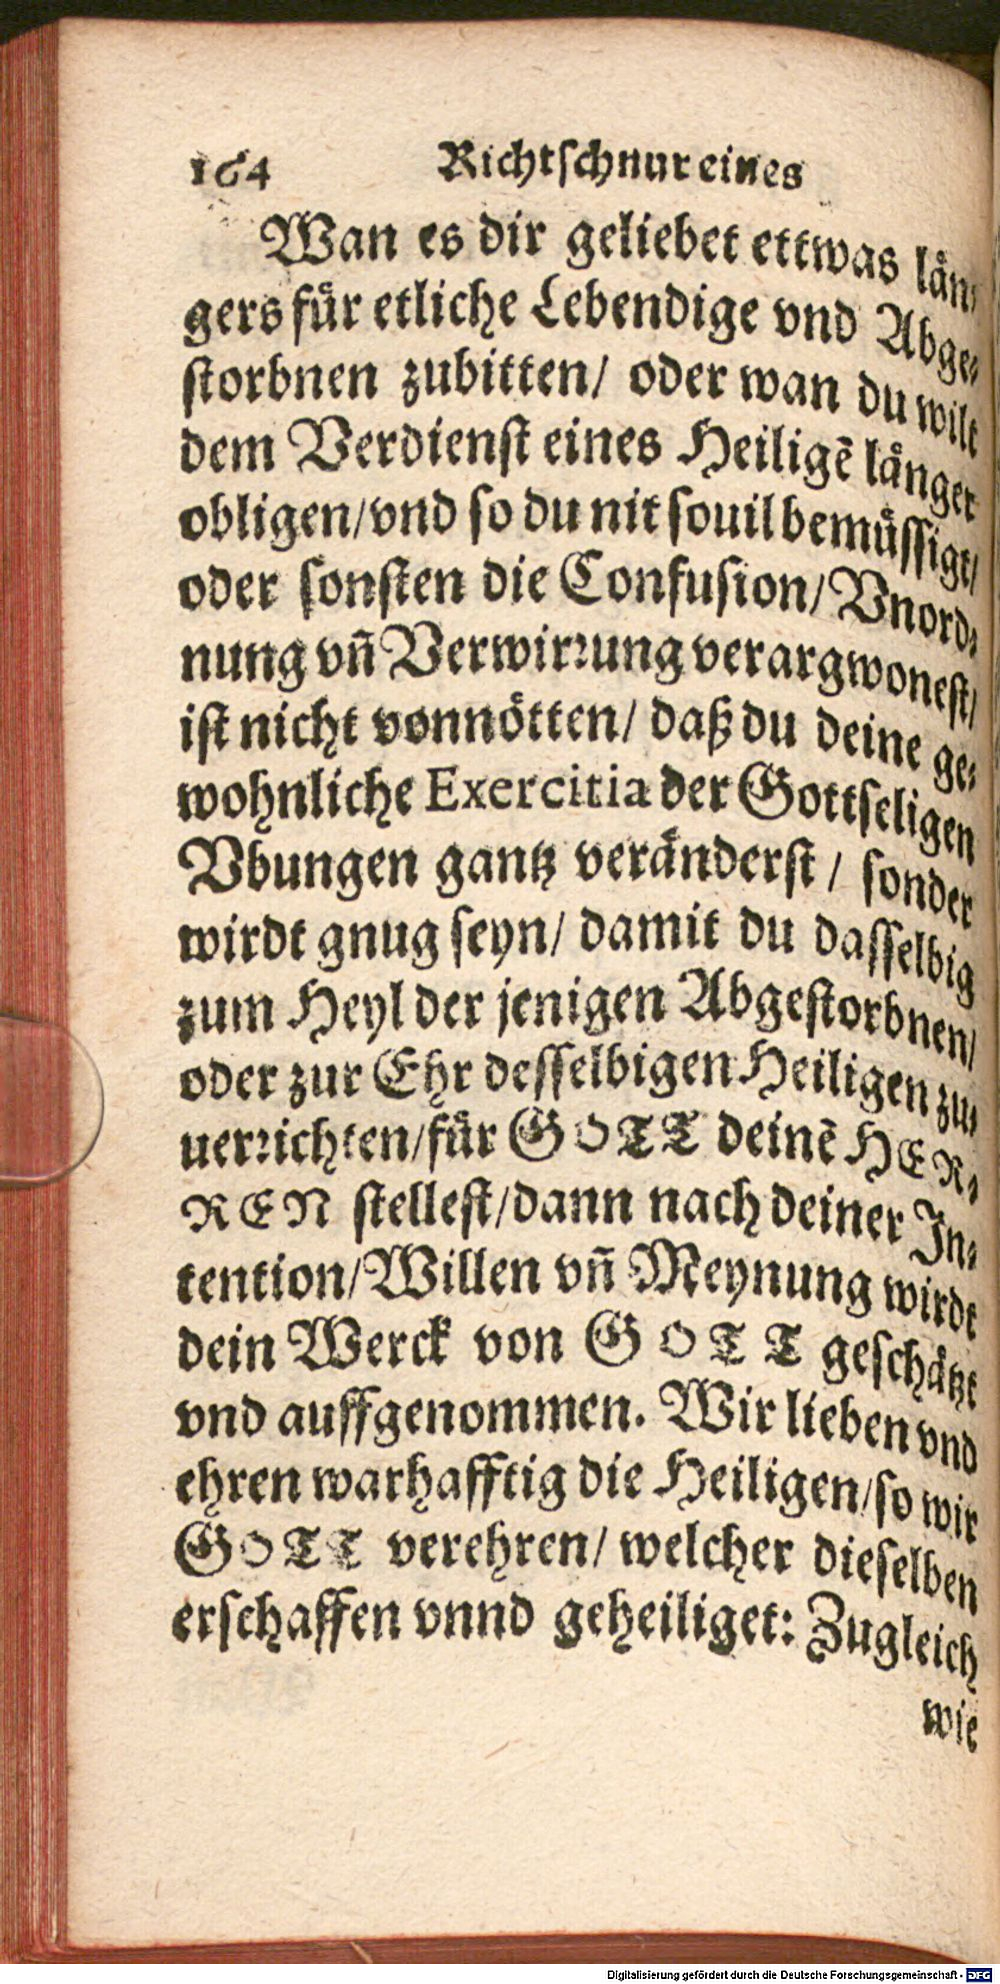 164 Richtschnur eines
Wan es dir geliebet ettwas län⸗
gers für etliche Lebendige vnd Abge⸗
storbnen zubitten/ oder wan du wilt
dem Verdienst eines Heiligẽ länger
obligen/vnd so du nit souil bemüssigt/
oder sonsten die Confusion/Vnord⸗
nung vñ Verwirꝛung verargwonest/
ist nicht vonnötten/ daß du deine ge⸗
wohnliche Exercitia der Gottseligen
Vbungen gantz veränderst / sonder
wirdt gnug seyn/ damit du dasselbig
zum Heyl der jenigen Abgestorbnen/
oder zur Ehr desselbigen Heiligen zu⸗
uerꝛichten/für GOTT deinẽ HER⸗
REN stellest/dann nach deiner In⸗
tention/Willen vñ Meynung wirdt
dein Werck von GOTT geschätzt
vnd auffgenommen. Wir lieben vnd
ehren warhafftig die Heiligen/so wir
GOTT verehren/ welcher dieselben
erschaffen vnnd geheiliget: Zugleich
wie
Digitalisierung gefördert durch die Deutsche Forschungsgemeinschaft - DFG